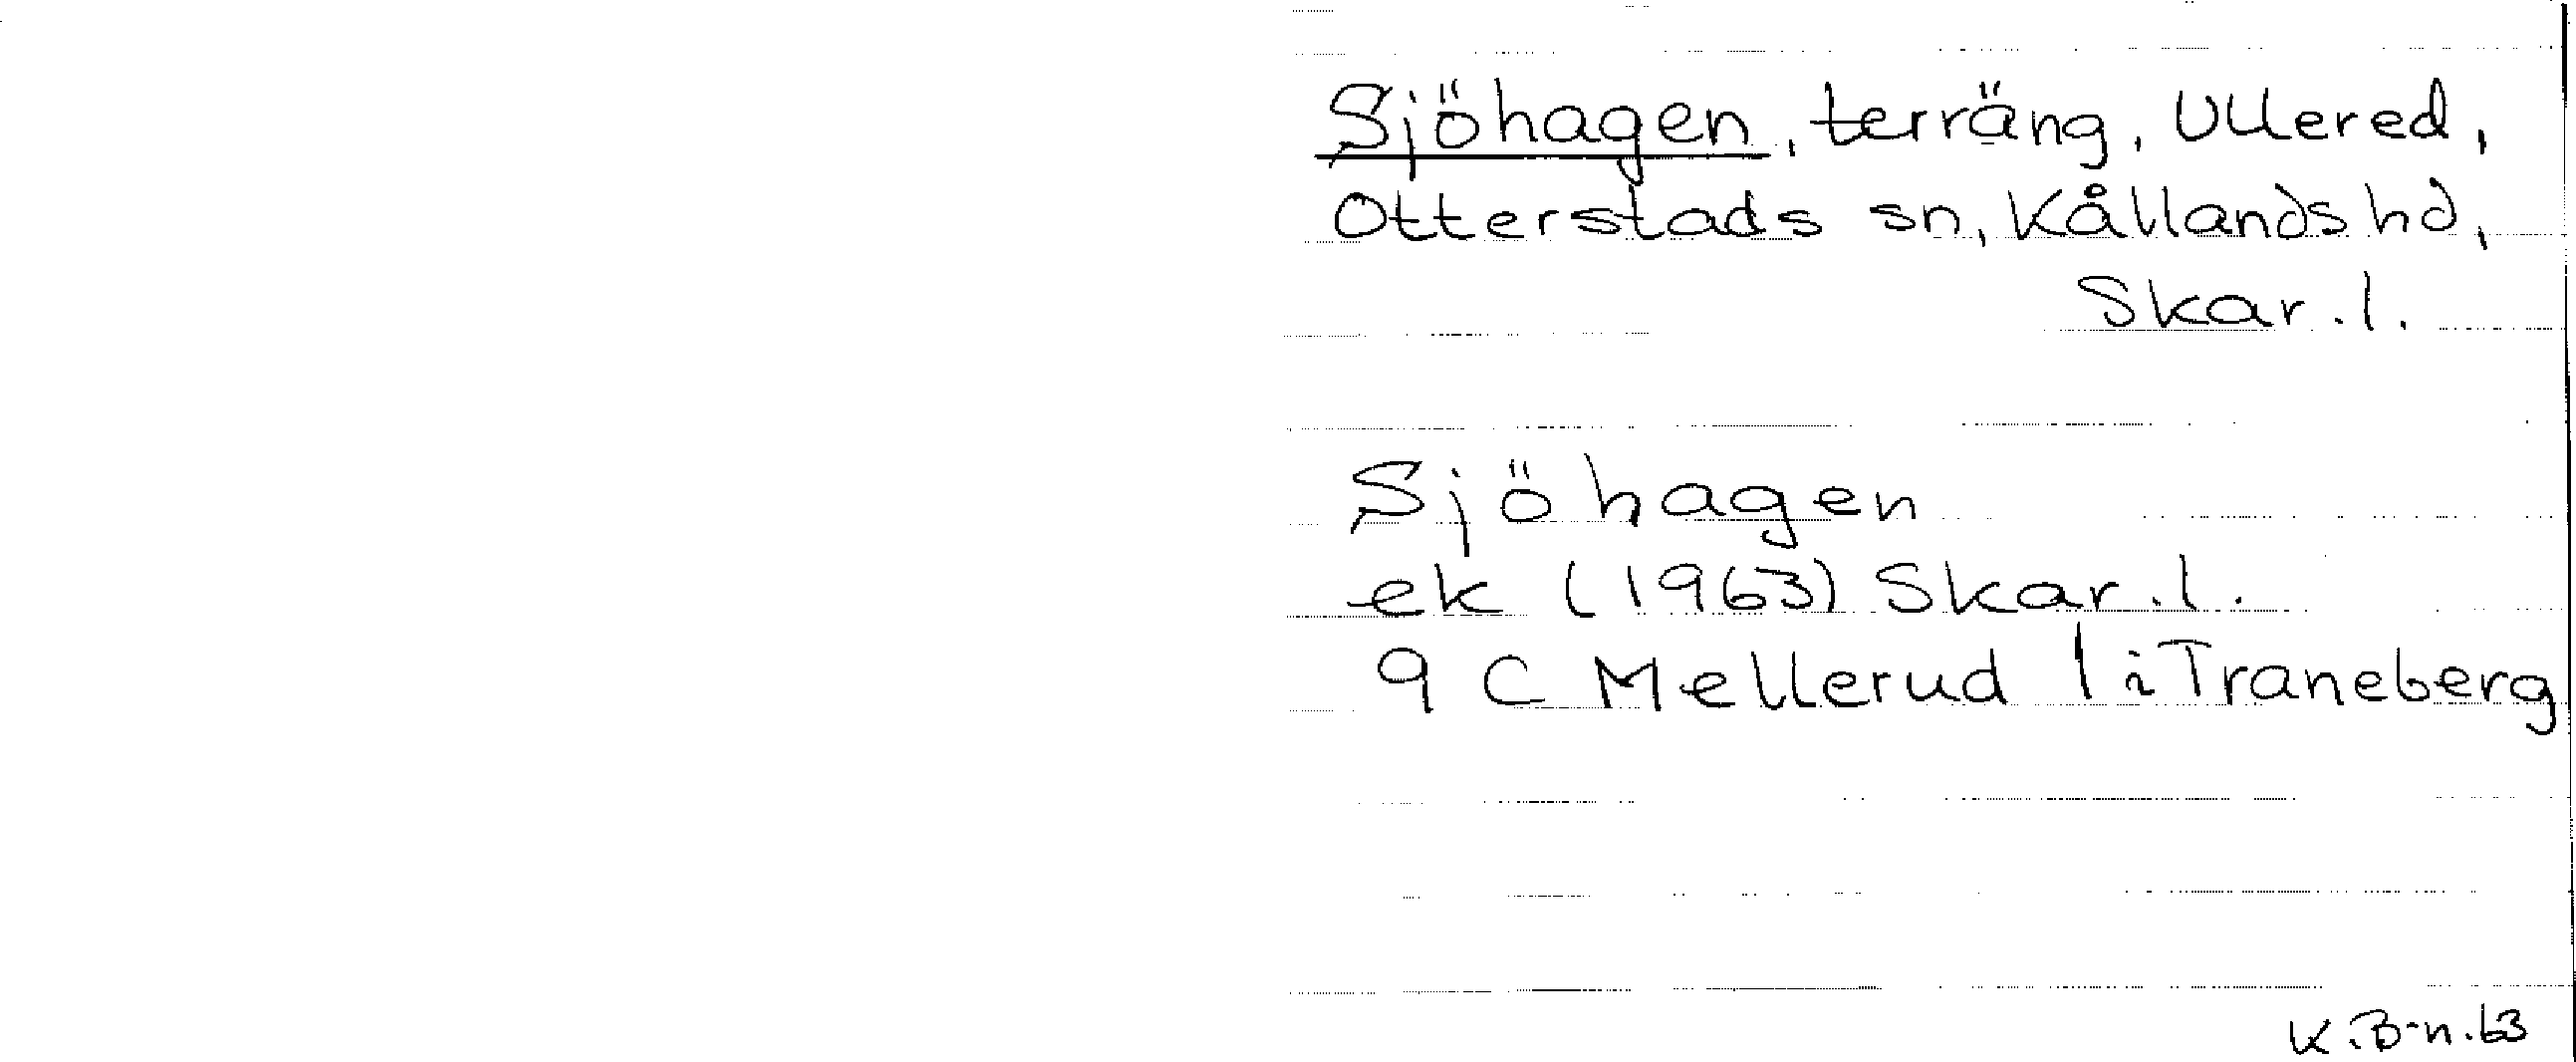 Sjöhagen, terräng, Ullered,
Otterstads sn, Kållands hd,
Skar. l.
Sjöhagen
ek (1963) Skar. l.
9 C Mellerud 1 i Traneberg
K.B-n.63